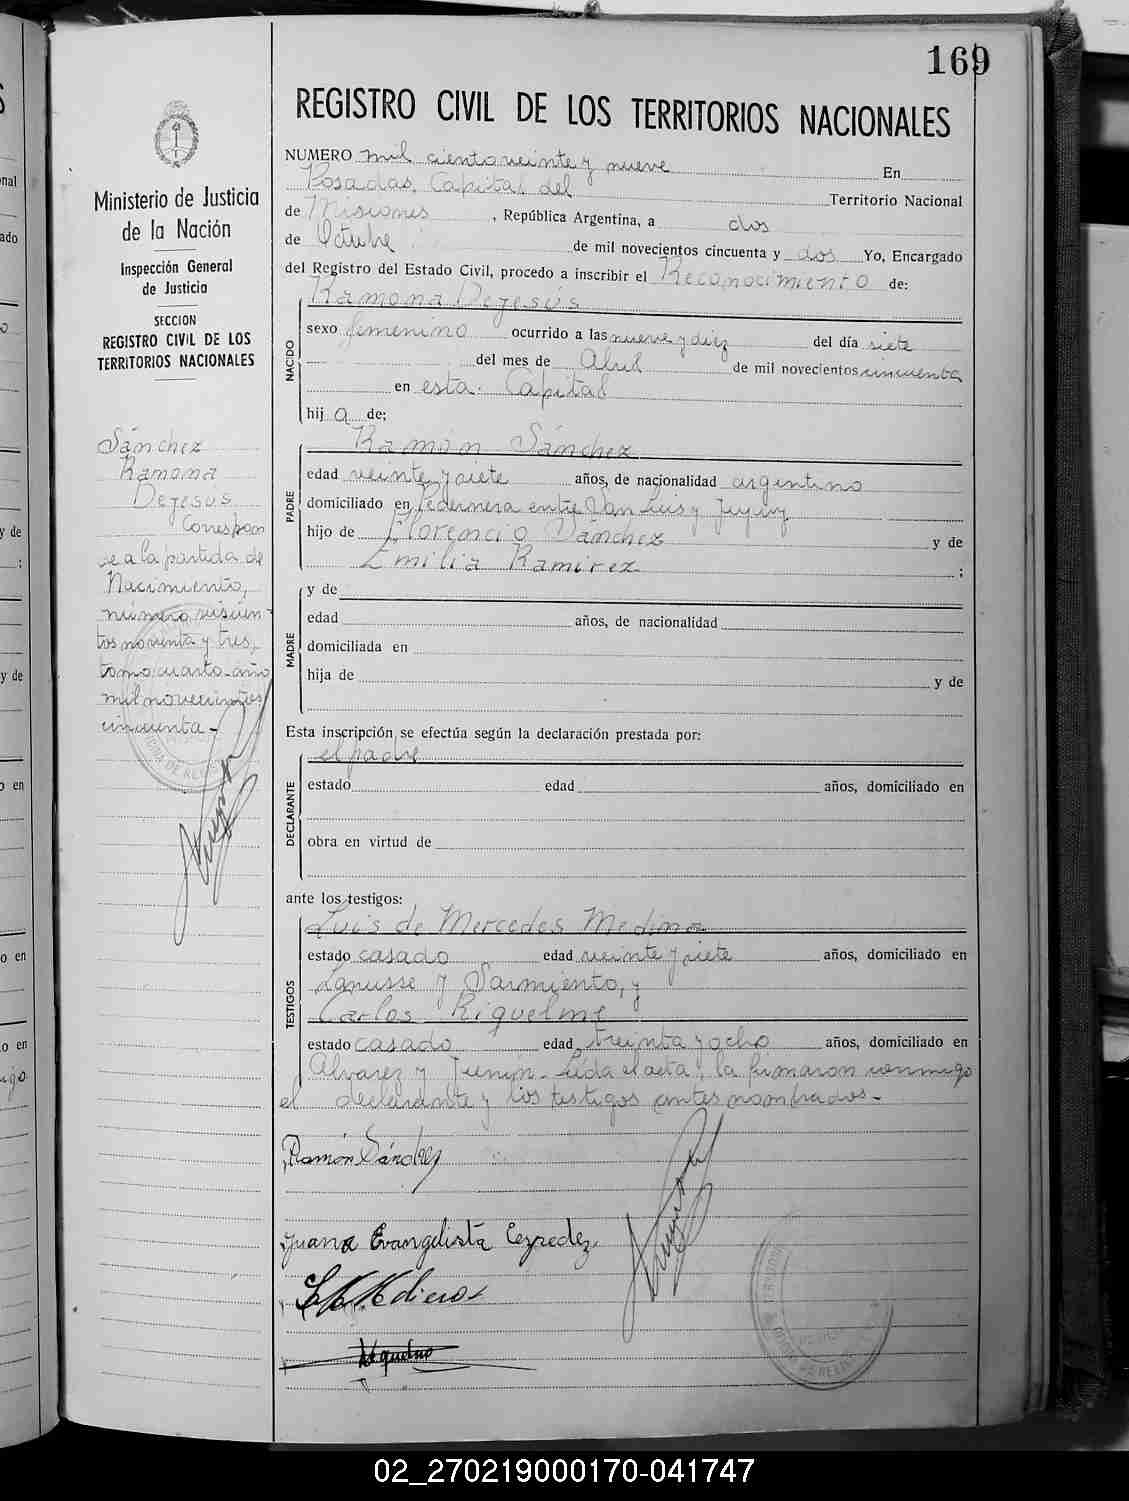 169
REGISTRO CIVIL DE LOS TERRITORIOS NACIONALES
Ministerio de Justicia
de la Nación
Inspección General
de Justicia
SECCION
REGISTRO CIVIL DE LOS
TERRITORIOS NACIONALES
Sánchez
Ramona
Dejesús
Correspon
de a la partida de
Nacimiento,
número
tos noventa y tres,
tomo cuarto año
mil novecientos
cincuenta-
NUMERO mil ciento veinte y nueve En
Posadas, Capital del Territorio Nacional
de Misiones, República Argentina, a dos
de Octubre de mil novecientos cincuenta y dos Yo, Encargado
del Registro del Estado Civil, procedo a inscribir el Reconocimiento de:
Ramona Dejesús
NACIDO
sexo femenino ocurrido a las nueve y diez del día siete
del mes de Abril de mil novecientos cincuenta
en esta Capital
hij a de:
PADRE
Ramón Sánchez
edad veinte y siete años, de nacionalidad argentino
domiciliado en Pedernera entre San Luis y Jujuy
hijo de Florencio Sánchez y de
Emilia Ramirez ;
MADRE
y de
edad años, de nacionalidad
domiciliada en
hija de y de
Esta inscripción se efectúa según la declaración prestada por:
DECLARANTE
el padre
estado edad años, domiciliado en
obra en virtud de
ante los testigos:
TESTIGOS
Luis de Mercedes Medina
estado casado edad veinte y siete años, domiciliado en
Lanusse y Sarmiento, y
Carlos Riquelme
estado casado edad treinta y ocho años, domiciliado en
Alvarez y Junín - Leída el acta, la firmaron conmigo
el declarante y los testigos antes nombrados-
Ramón Sánchez
Juana Evangelista
02_270219000170-041747